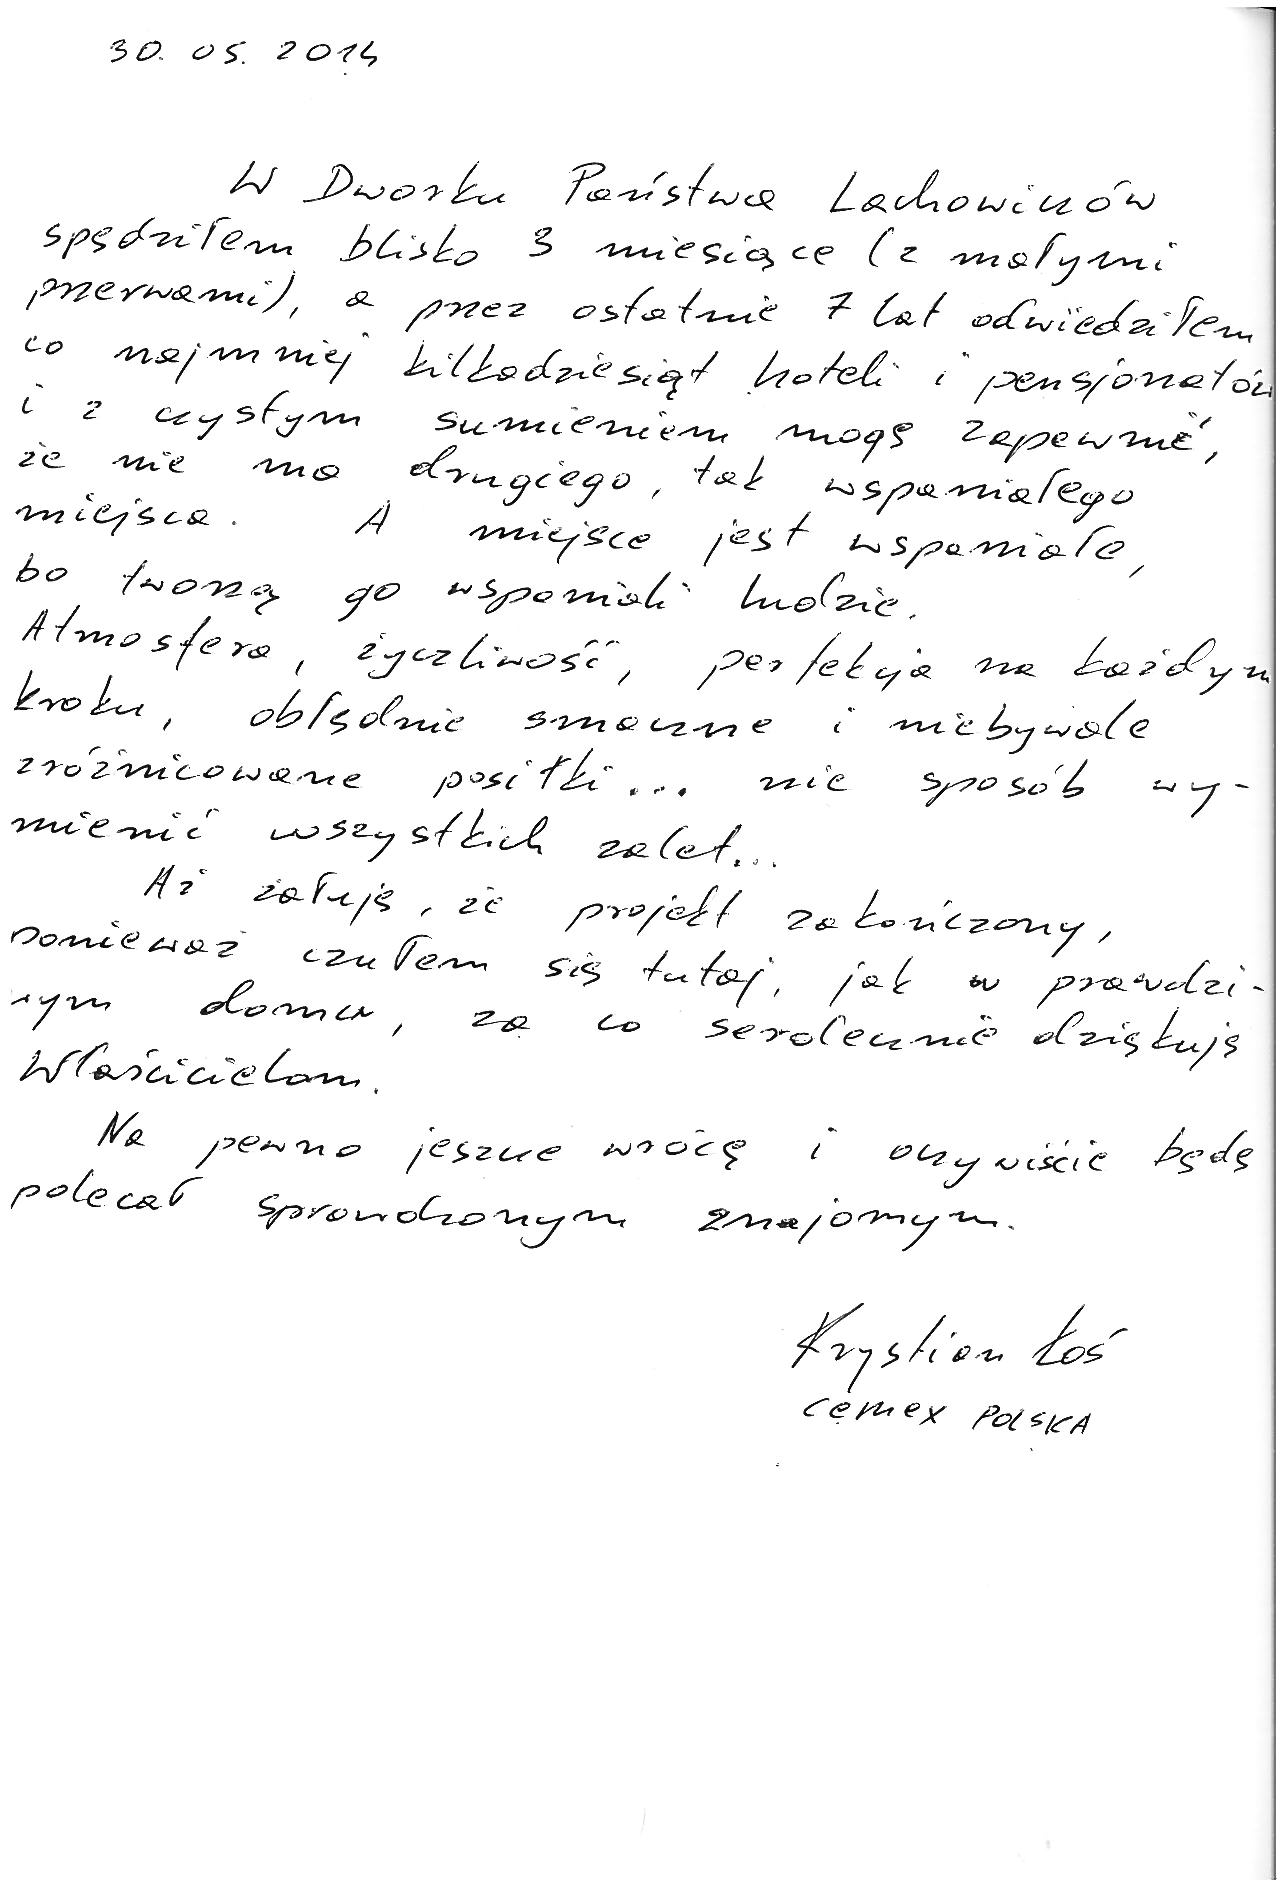 30. 05. 2014
W Dworku Państwa Lachowiczów
spędziłem blisko 3 miesiące (z małymi
przerwami), a przez ostatnie 7 lat odwiedziłem
co najmniej kilkadziesiąt hoteli i pensjonatów
i z czystym sumieniem mogę zapewnić,
że nie ma drugiego, tak wspaniałego
miejsca. A miejsce jest wspaniałe,
bo tworzą go wspaniali ludzie.
Atmosfera, życzliwość, perfekcja na każdym
kroku, obłędnie smaczne i niebywale
zróżnicowane posiłki... nie sposób wy-
mienić wszystkich zalet...
Aż żałuję, że projekt zakończony,
ponieważ czułem się tutaj, jak w prawdzi-
wym domu, za co serdecznie dziękuję
Właścicielom.
Na pewno jeszcze wrócę i oczywiście będę
polecał sprawdzonym znajomym.
Krystian Łoś
CEMEX POLSKA